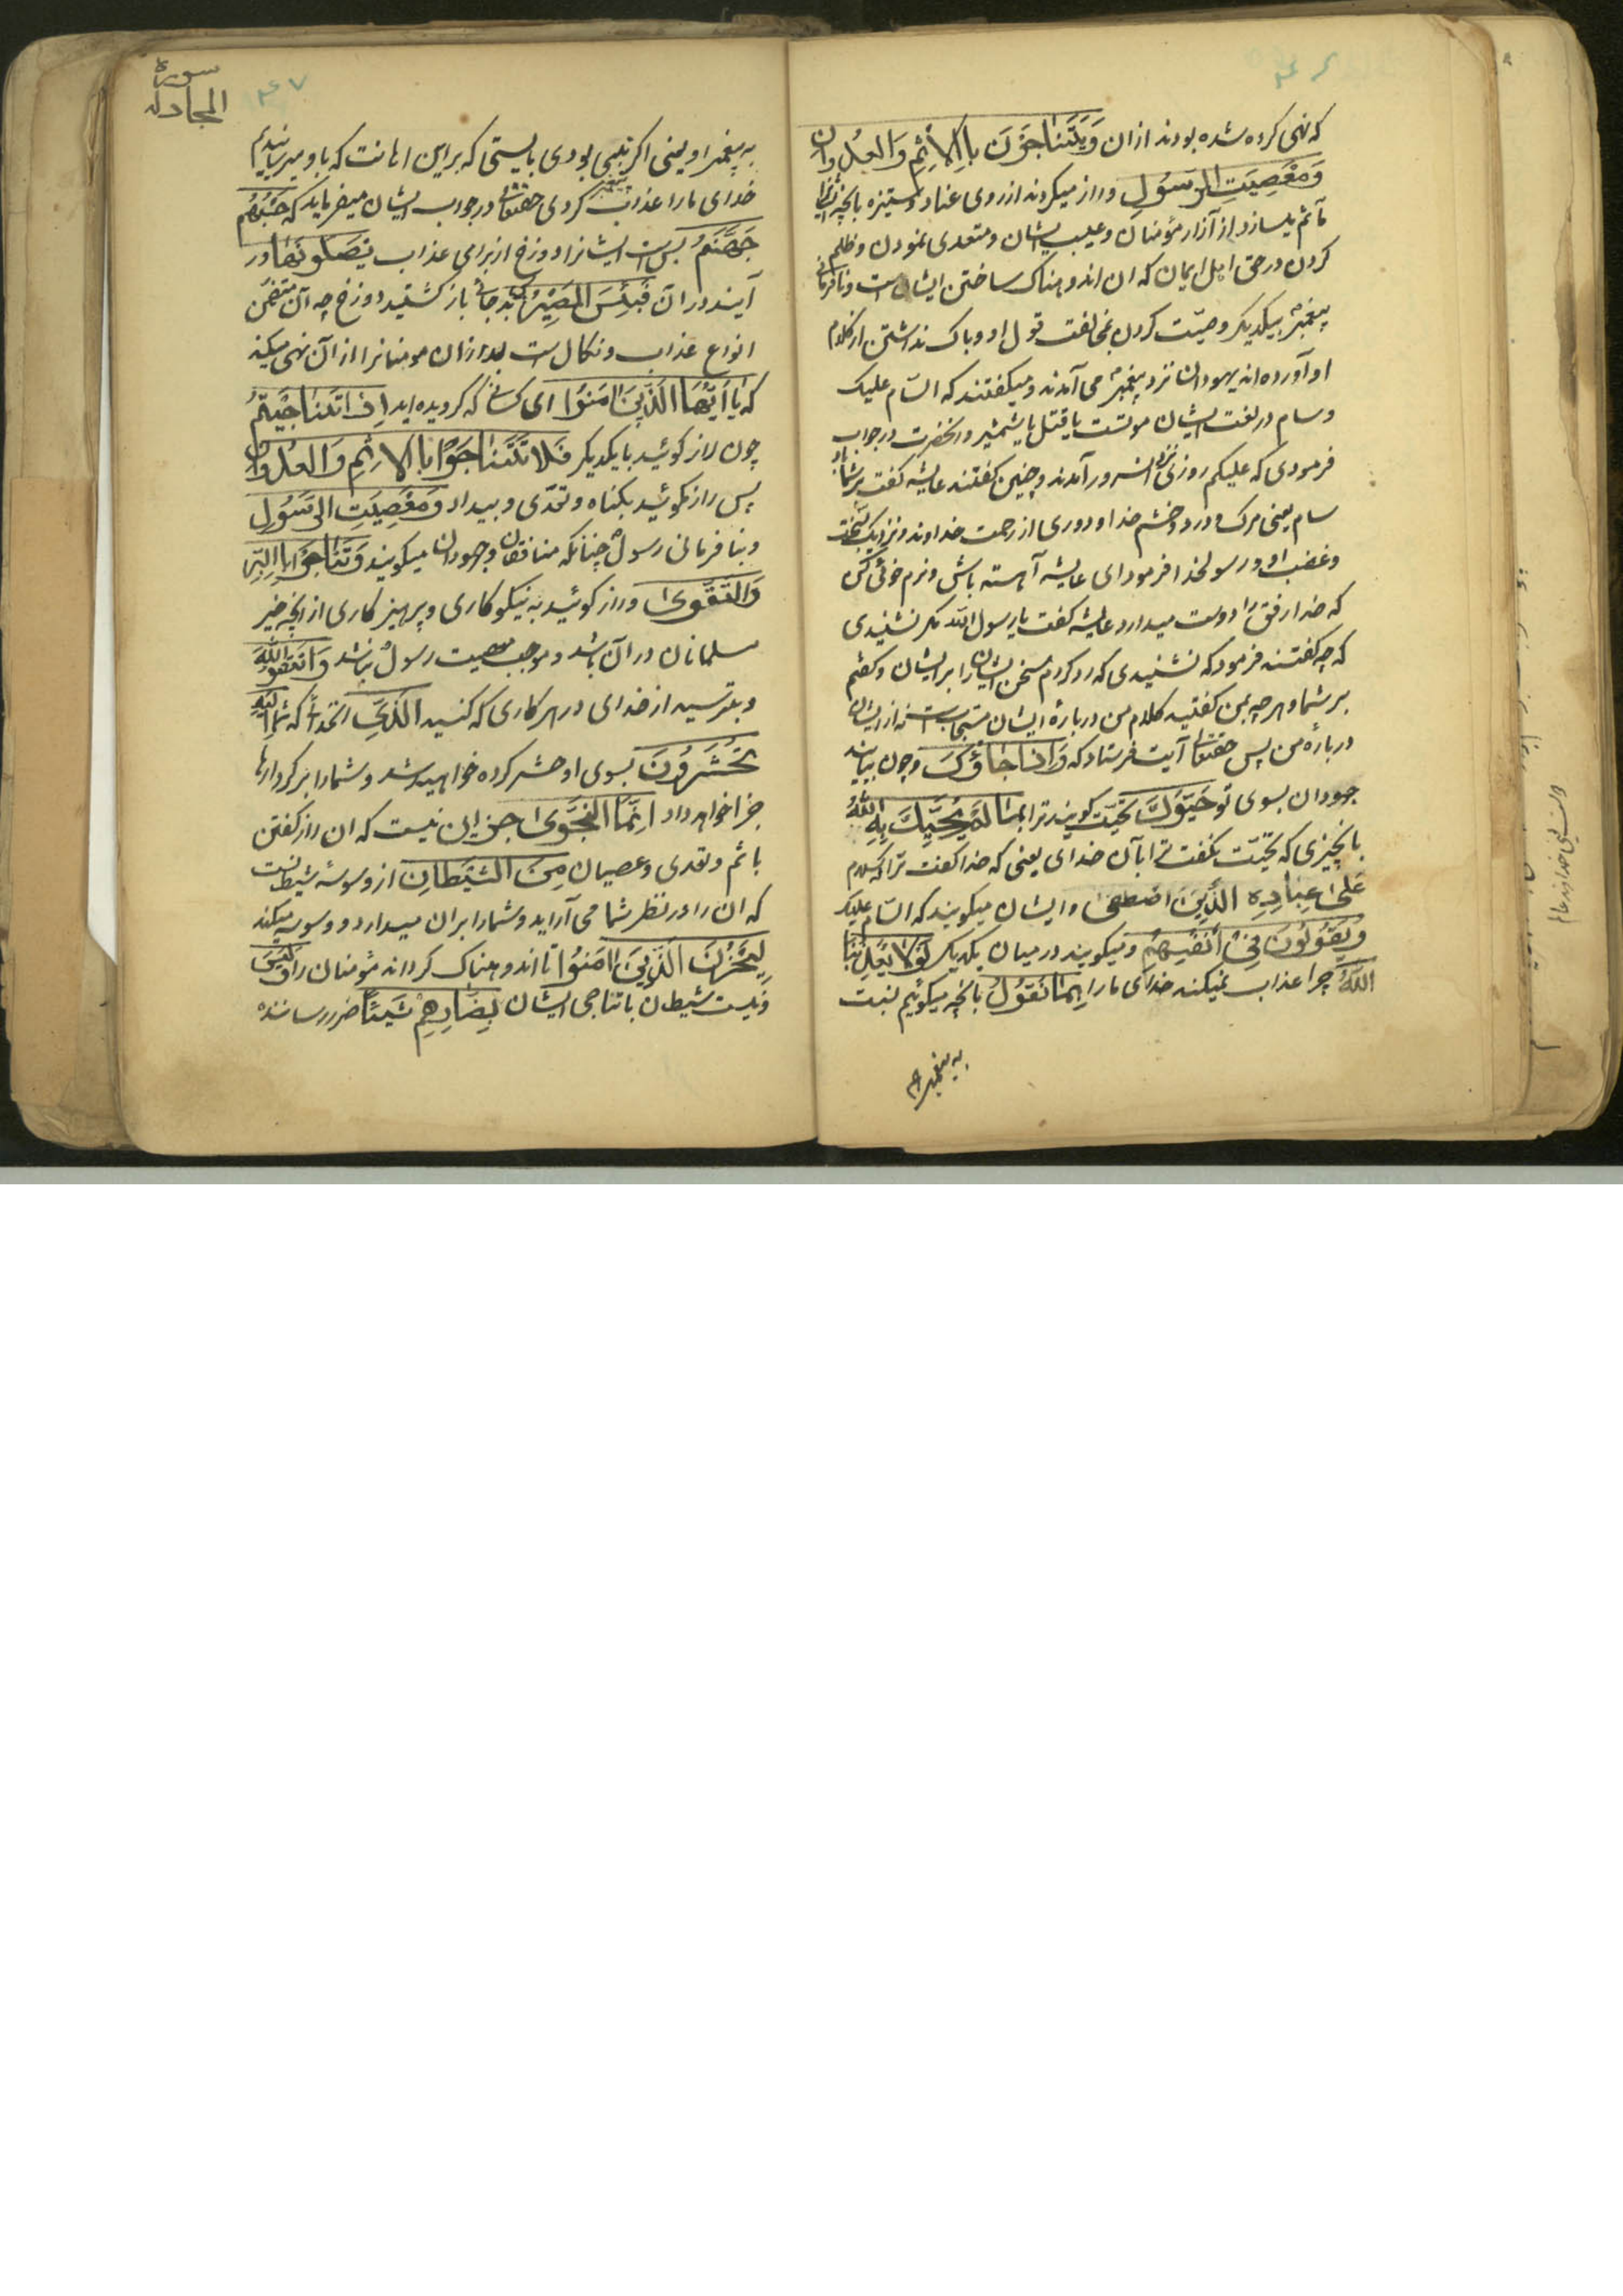 که نهی کرده شده بودند از ان وَيَتَنَاجَوْنَ بِالْاِثْمِ وَالْعُدْوَانِ
وَمَعْصِيَتِ الرَّسُولِ و راز میکردند از روی عناد و ستیزه بانچه ایشانرا
مأثم میسازد از آزار مؤمنان و عیب ایشان و متعدی نمودن و ظلم
کردن در حق اهل ایمان که ان اندوهناک ساختن ایشان است و نافرمانی
پیغمبر بیکدیکر وصیّت کردن بمخالفت قول او و باک نداشتن از کلام
او آورده اند یهودان نزد پیغمبر می آمدند و میکفتند که السّام علیک
و سام در لغت ایشان موتست یا قتل یا شمشیر و انحضرت در جواب
فرمودی که علیکم روزی نزد انسرور آمدند و چنین کفتند عایشه کفت بر شما باد
سام یعنی مرک و درد و خشم خدا و دوری از رحمت خداوند و نزدیک
و غضب او و رسولخدا فرمود ای عایشه آهسته باش و نرم خوئی کن
که خدا رفق را دوست میدارد عایشه کفت یا رسول الله مکر نشنیدی
که چه کفتند فرمود که نشنیدی که رد کردم سخن ایشان را بر ایشان و کفتم
بر شما و هر چه بمن کفتید کلام من در بارهٔ ایشان مستجابست نه از ایشان
در بارهٔ من پس حقتعا آیت فرستاد که وَاِذَا جَاؤُكَ و چون بیایند
جهودان بسوی تو حَيَّوْكَ تحیّت کویند ترا بِمَا لَمْ يُحَيِّكَ بِهِ اللّٰهُ
بانچیزی که تحیّت نکفت ترا بآن خدای یعنی که خدا کفت ترا که سلام
عَلىٰ عِبَادِهِ الَّذِينَ اصْطَفىٰ و ایشان میکویند که السّام علیک
وَيَقُولُونَ فِىْ اَنْفُسِهِمْ و میکویند در میان یکدیکر لَوْلَا يُعَذِّبُنَا
اللّٰهُ چرا عذاب نمیکند خدای ما را بِمَا نَقُولُ بانچه میکوئیم نسبت
به پیغمبر
سورة
المجادله
۱۴۷
به پیغمبر او یعنی اکر نبی بودی بایستی که بر این اهانت که باو میرسانیدیم
خدای ما را عذاب کردی حقتعا در جواب ایشان میفرماید که حَسْبُهُمْ
جَهَنَّمُ بس است ایشانرا دوزخ از برای عذاب يَصْلَوْنَهَا در
آیند در آن فَبِئْسَ الْمَصِيْرُ پس بد جائی باز کشتید دوزخ چه آن متضمن
انواع عذاب و نکال است بعد از ان مومنانرا از آن نهی میکند
که يَا اَيُّهَا الَّذِينَ اٰمَنُوْا ای کسانی که کرویده اید اِذَا تَنَاجَيْتُمْ
چون راز کوئید با یکدیکر فَلَا تَتَنَاجَوْا بِالْاِثْمِ وَالْعُدْوَانِ
پس راز مکوئید بکناه و تعدّی و بیداد وَمَعْصِيَتِ الرَّسُولِ
و بنافرمانی رسول چنانکه منافقان و جهودان میکویند وَتَنَاجَوْا بِالْبِرِّ
وَالتَّقْوىٰ و راز کوئید به نیکوکاری و پرهیزکاری از انچه خیر
مسلمانان در آن باشد و موجب معصیت رسول نباشد وَاتَّقُوا اللّٰهَ
و بترسید از خدای در هر کاری که کنید الَّذِىْ انخدائی که شما اِلَيْهِ
تُحْشَرُوْنَ بسوی او حشر کرده خواهید شد و شما را بر کردارها
جزا خواهد داد اِنَّمَا النَّجْوىٰ جز این نیست که ان راز کفتن
باثم و تعدی و عصیان مِنَ الشَّيْطَانِ از وسوسه شیطانست
که ان را در نظر شما می آراید و شما را بران میدارد و وسوسه میکند
لِيَحْزُنَ الَّذِينَ اٰمَنُوْا تا اندوهناک کرداند مؤمنان را وَلَيْسَ
و نیست شیطان یا تناجی ایشان بِضَارِّهِمْ شَيْئًا ضرر رساننده